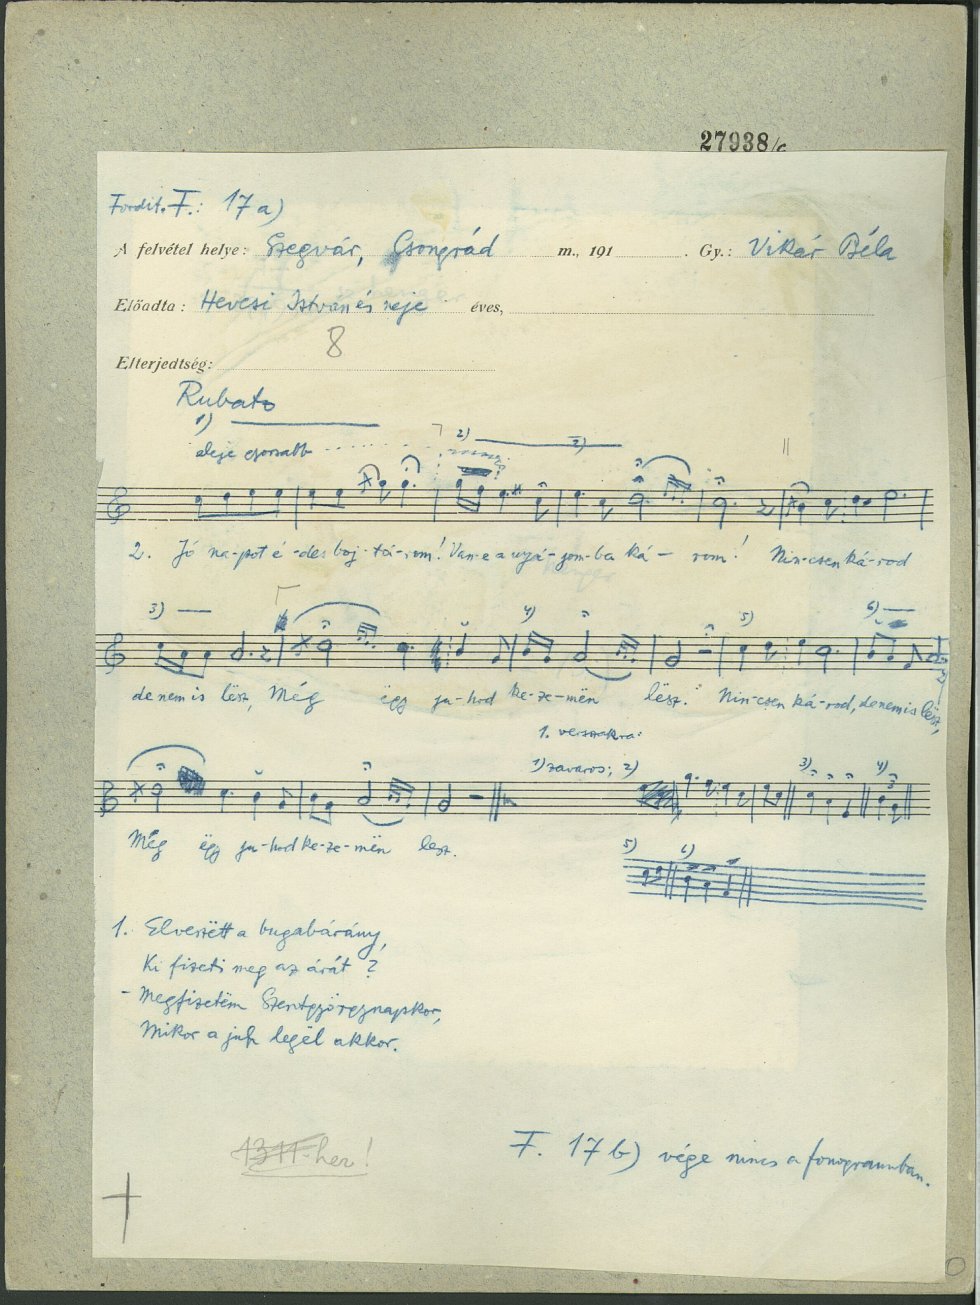 27938/c
Fordít. F.: 17a)
A felvétel helye: Szegvár, Csongrád m., 191 . Gy.: Vikár Béla
Előadta: Hevesi Istvan és neje éves,
8
Elterjedtség:
Rubato
1)
eleje gyorsabb
2) 2)
2. Jó na-pot é-des boj-tá-rom! Van-e a nyá-jom-ba ká- rom! Nin-csen ká-rod
3) 4) 5) 6)
de nem is lësz, Még ëgy ju-hod ke-ze-mën lësz. Nin-csen ká-rod, de nem is lësz,
1. versszakra:
1) zavaros; 2) 3) 4)
Még ëgy ju-hod ke-ze-mën lesz.
5) 6)
1. Elveszëtt a bugabárány,
Ki fizeti meg az árát?
- Megfizetëm Szentgyörgynapkor,
Mikor a juh legël akkor.
1311-hez!
F. 17b) vége nincs a fonogrammban.